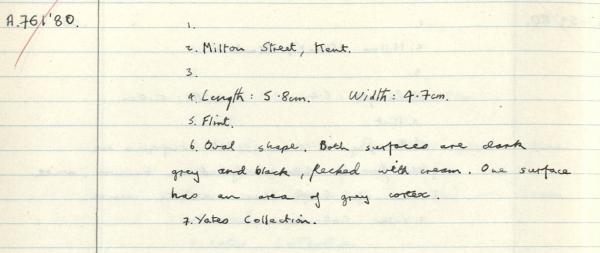 A.761'80.
1.
2. Milton Street, Kent.
3.
4. Length: 5.8cm. Width: 4.7cm.
5. Flint.
6. Oval shape. Both surfaces are dark
grey and black, flecked with cream. One surface
has an area of grey cortex.
7. Yates Collection.